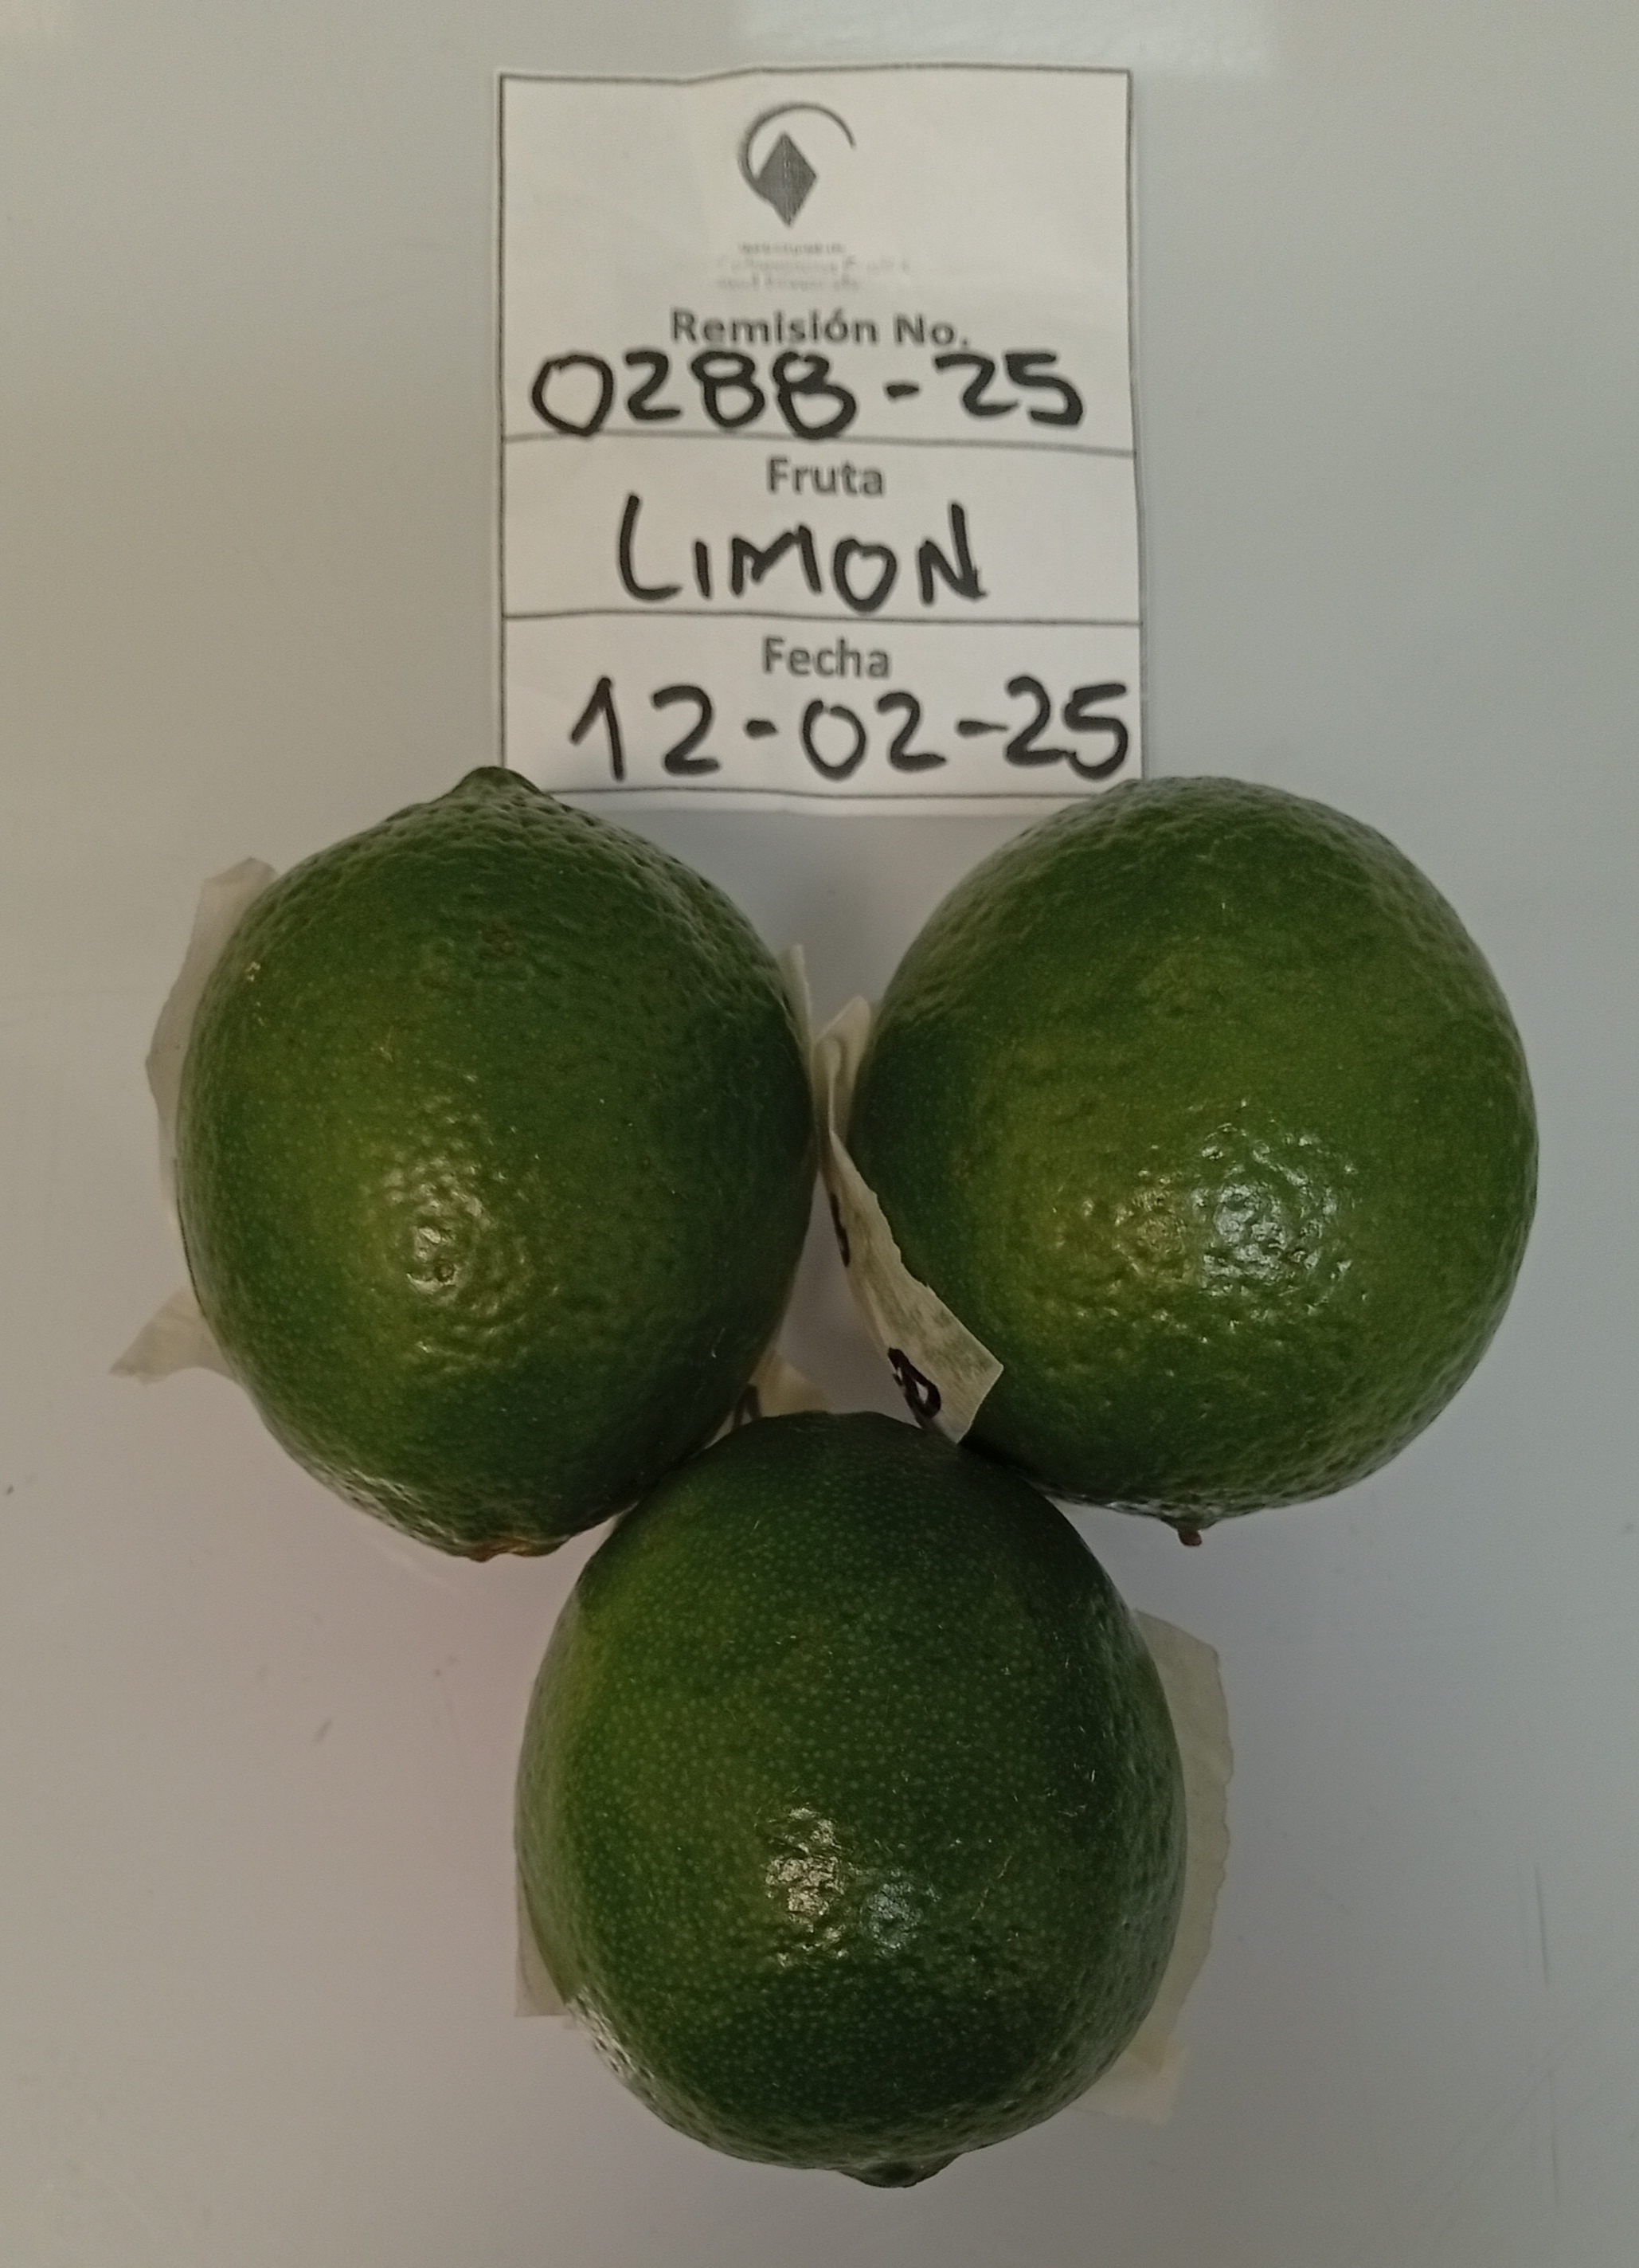 Remisión No.
0288-25
Fruta
LIMON
Fecha
12-02-25